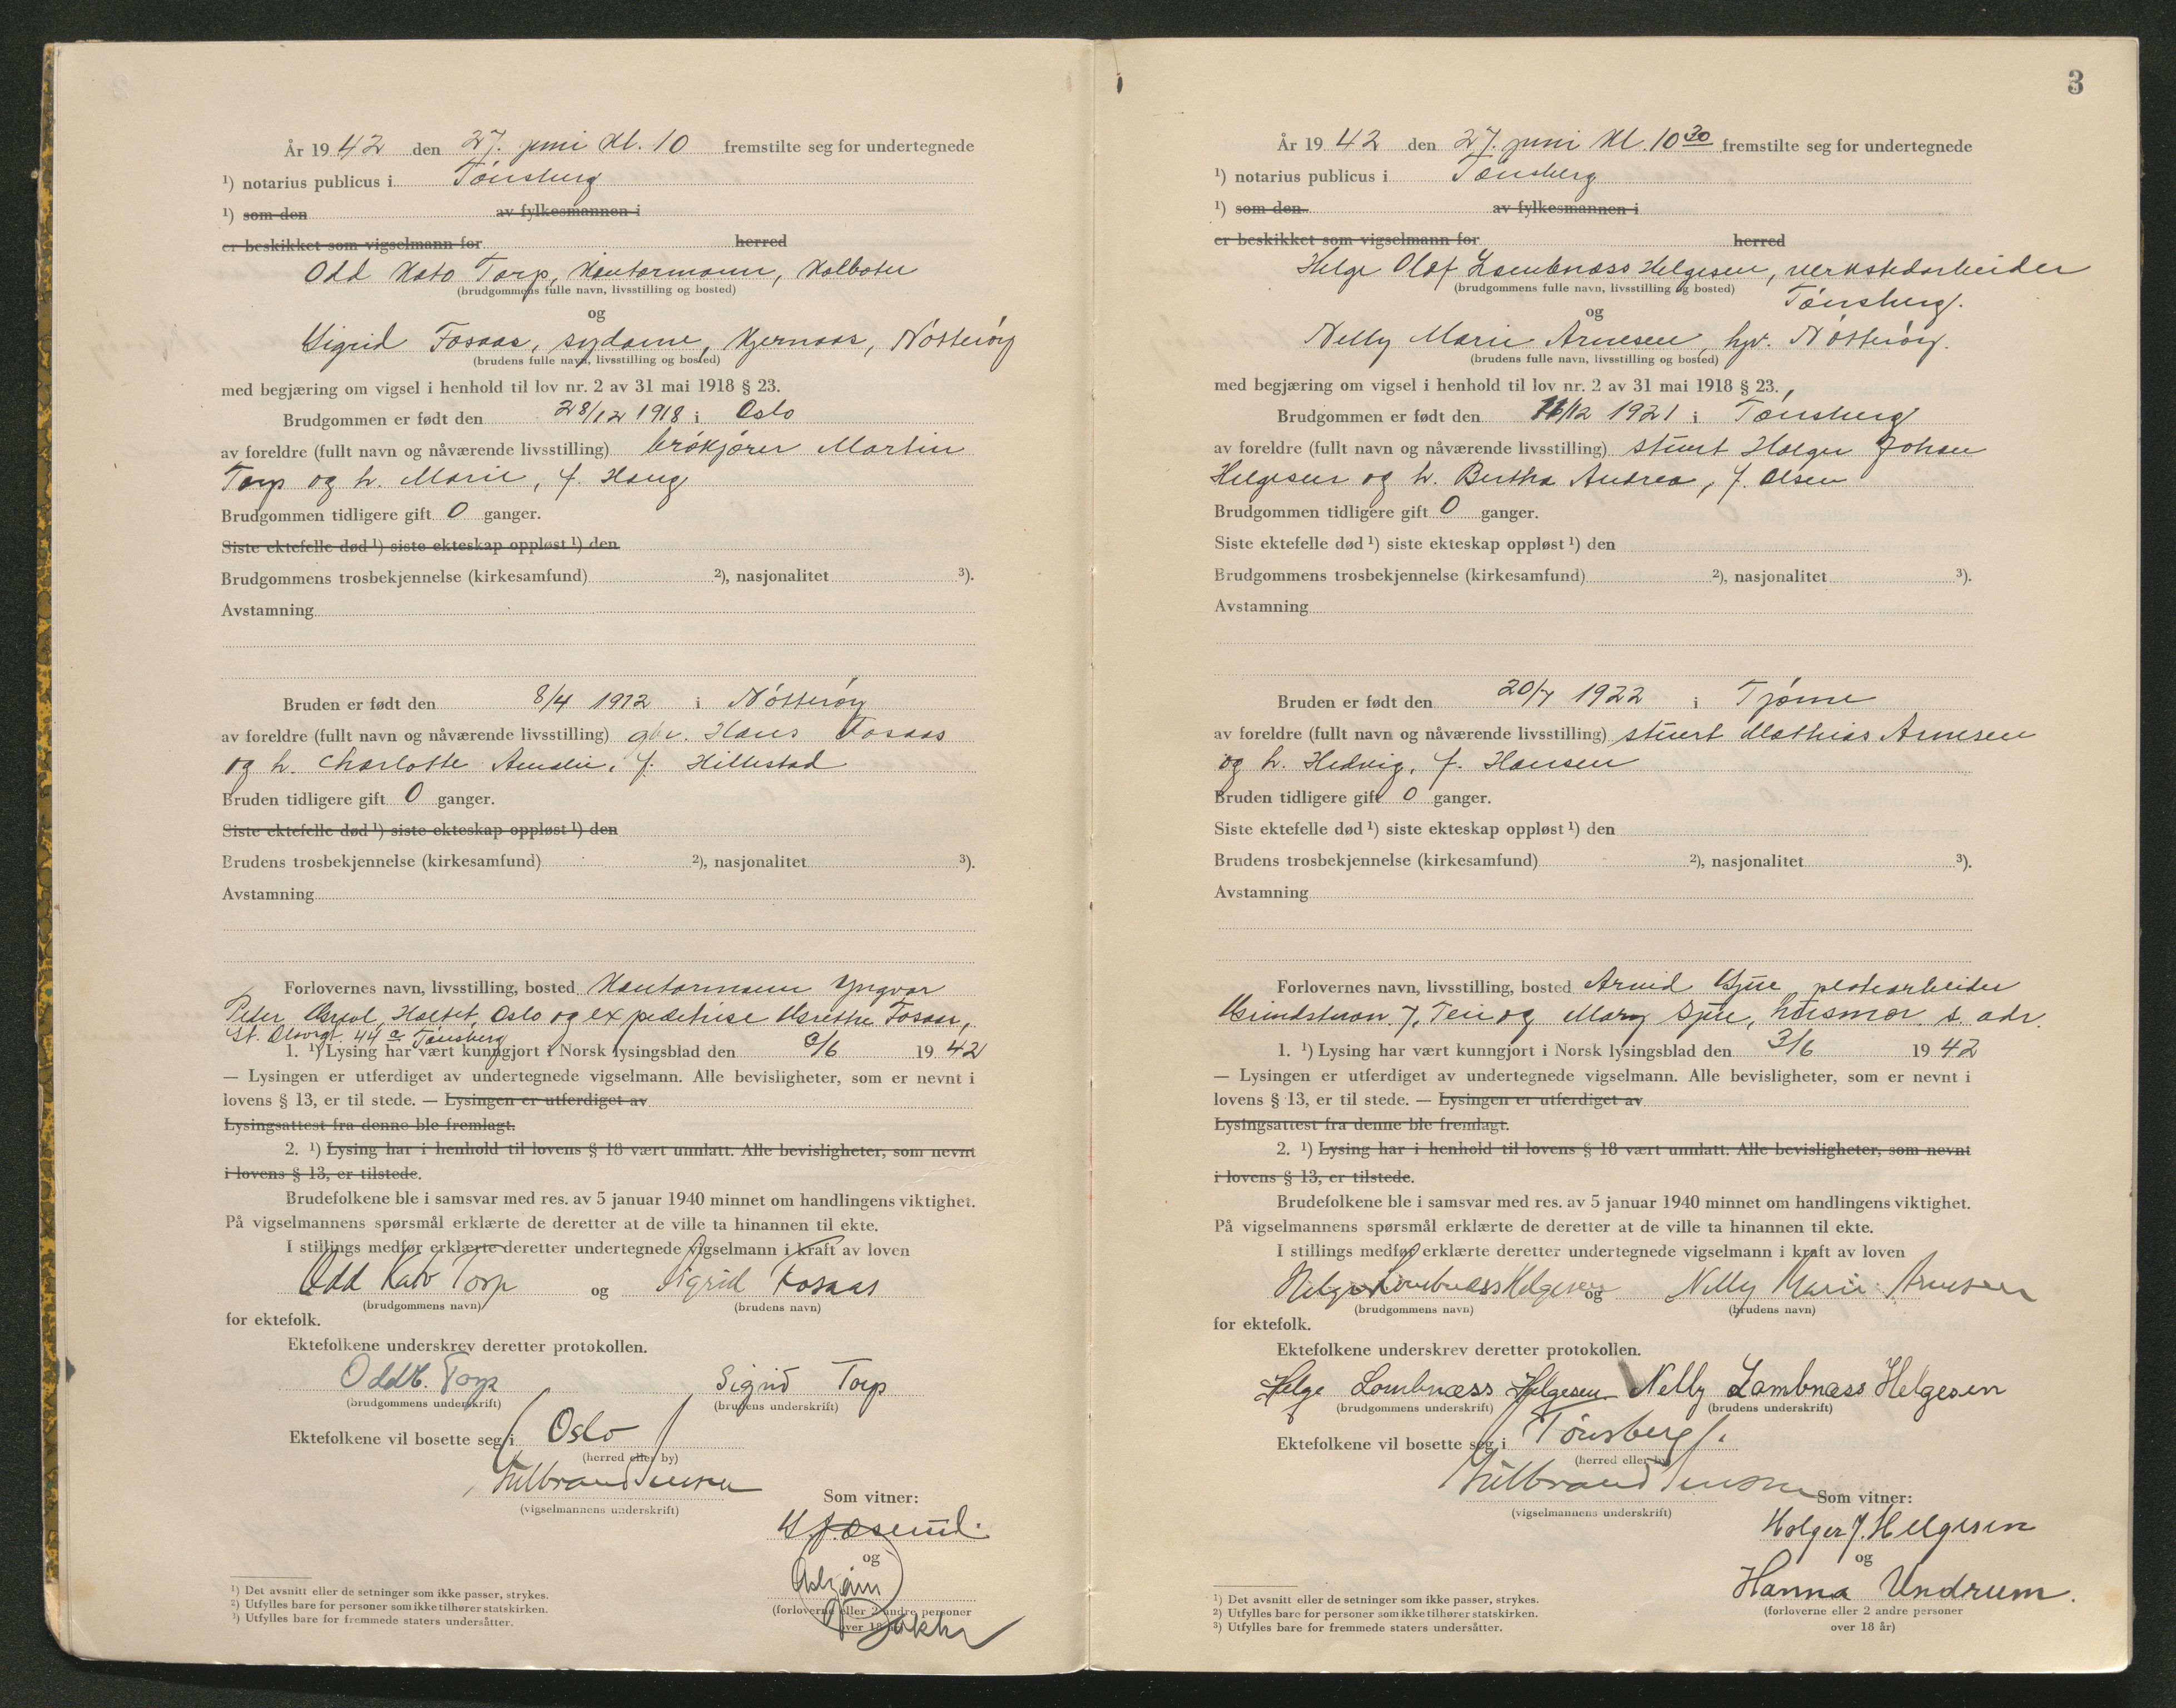 År 1942 den 27. juni kl. 10 fremstilte seg for undertegnede
¹) notarius publicus i Tønsberg
¹) som den av fylkesmannen i
er beskikket som vigselmann for herred
Odd Kato Torp, kontormann, Kolbotn
(brudgommens fulle navn, livsstilling og bosted)
og
Sigrid Fosaas, sydame, Kjernaas, Nøtterøy
(brudens fulle navn, livsstilling og bosted)
med begjæring om vigsel i henhold til lov nr. 2 av 31 mai 1918 § 23.
Brudgommen er født den 28/12 1918 i Oslo
av foreldre (fullt navn og nåværende livsstilling) Martin
Torp og h. Marie, f. Haug
Brudgommen tidligere gift 0 ganger.
Siste ektefelle død ¹) siste ekteskap oppløst ¹) den
Brudgommens trosbekjennelse (kirkesamfund) ²), nasjonalitet ³).
Avstamning
Bruden er født den 8/4 1912 i Nøtterøy
av foreldre (fullt navn og nåværende livsstilling) gbr. Hans Fosaas
og h. Charlotte Amalie, f. Hillestad
Bruden tidligere gift 0 ganger.
Siste ektefelle død ¹) siste ekteskap oppløst ¹) den
Brudens trosbekjennelse (kirkesamfund) ²), nasjonalitet ³).
Avstamning
Forlovernes navn, livsstilling, bosted Kontormann Yngvar
Peter Oslo og expeditrise Fosaas,
St. Olavsgt. 44 a Tønsberg
1. ¹) Lysing har vært kunngjort i Norsk lysingsblad den 3/6 1942
— Lysingen er utferdiget av undertegnede vigselmann. Alle bevisligheter, som er nevnt i
lovens § 13, er til stede. — Lysingen er utferdiget av
Lysingsattest fra denne ble fremlagt.
2. ¹) Lysing har i henhold til lovens § 18 vært unnlatt. Alle bevisligheter, som nevnt
i lovens § 13, er tilstede.
Brudefolkene ble i samsvar med res. av 5 januar 1940 minnet om handlingens viktighet.
På vigselmannens spørsmål erklærte de deretter at de ville ta hinannen til ekte.
I stillings medfør erklærte deretter undertegnede vigselmann i kraft av loven
Odd Kato Torp og Sigrid Fosaas
(brudgommens navn) (brudens navn)
for ektefolk.
Ektefolkene underskrev deretter protokollen.
Odd K. Torp Sigrid Torp
(brudgommens underskrift) (brudens underskrift)
Ektefolkene vil bosette seg i Oslo
(herred eller by)
(vigselmannens underskrift)
Som vitner:
og
(forloverne eller 2 andre personer
over 18 år)
¹) Det avsnitt eller de setninger som ikke passer, strykes.
²) Utfylles bare for personer som ikke tilhører statskirken.
³) Utfylles bare for fremmede staters undersåtter.
3
År 1942 den 27. juni kl. 10 30 fremstilte seg for undertegnede
¹) notarius publicus i Tønsberg
¹) som den av fylkesmannen i
er beskikket som vigselmann for herred
Helge Olaf Lambnæss Helgesen, verkstedarbeider
(brudgommens fulle navn, livsstilling og bosted) Tønsberg.
og
Nelly Marie Arnesen, hjv. Nøtterøy.
(brudens fulle navn, livsstilling og bosted)
med begjæring om vigsel i henhold til lov nr. 2 av 31 mai 1918 § 23.
Brudgommen er født den /12 1921 i Tønsberg
av foreldre (fullt navn og nåværende livsstilling) stuert Holger Johan
Helgesen og h. Bertha Andrea, f. Olsen
Brudgommen tidligere gift 0 ganger.
Siste ektefelle død ¹) siste ekteskap oppløst ¹) den
Brudgommens trosbekjennelse (kirkesamfund) ²), nasjonalitet ³).
Avstamning
Bruden er født den 20/7 1922 i Tjøme
av foreldre (fullt navn og nåværende livsstilling) stuert Mathias Arnesen
og h. Hedvig, f. Hansen
Bruden tidligere gift 0 ganger.
Siste ektefelle død ¹) siste ekteskap oppløst ¹) den
Brudens trosbekjennelse (kirkesamfund) ²), nasjonalitet ³).
Avstamning
Forlovernes navn, livsstilling, bosted Arvid platearbeider
7, Teie og Mary husmor s. adr.
1. ¹) Lysing har vært kunngjort i Norsk lysingsblad den 3/6 1942
— Lysingen er utferdiget av undertegnede vigselmann. Alle bevisligheter, som er nevnt i
lovens § 13, er til stede. — Lysingen er utferdiget av
Lysingsattest fra denne ble fremlagt.
2. ¹) Lysing har i henhold til lovens § 18 vært unnlatt. Alle bevisligheter, som nevnt
i lovens § 13, er tilstede.
Brudefolkene ble i samsvar med res. av 5 januar 1940 minnet om handlingens viktighet.
På vigselmannens spørsmål erklærte de deretter at de ville ta hinannen til ekte.
I stillings medfør erklærte deretter undertegnede vigselmann i kraft av loven
Helge Lambnæss Helgesen og Nelly Marie Arnesen
(brudgommens navn) (brudens navn)
for ektefolk.
Ektefolkene underskrev deretter protokollen.
Helge Lambnæss Helgesen Nelly Lambnæss Helgesen
(brudgommens underskrift) (brudens underskrift)
Ektefolkene vil bosette seg i Tønsberg.
(herred eller by)
(vigselmannens underskrift)
Som vitner:
Holger J. Helgesen
og
Hanna Undrum.
(forloverne eller 2 andre personer
over 18 år)
¹) Det avsnitt eller de setninger som ikke passer, strykes.
²) Utfylles bare for personer som ikke tilhører statskirken.
³) Utfylles bare for fremmede staters undersåtter.